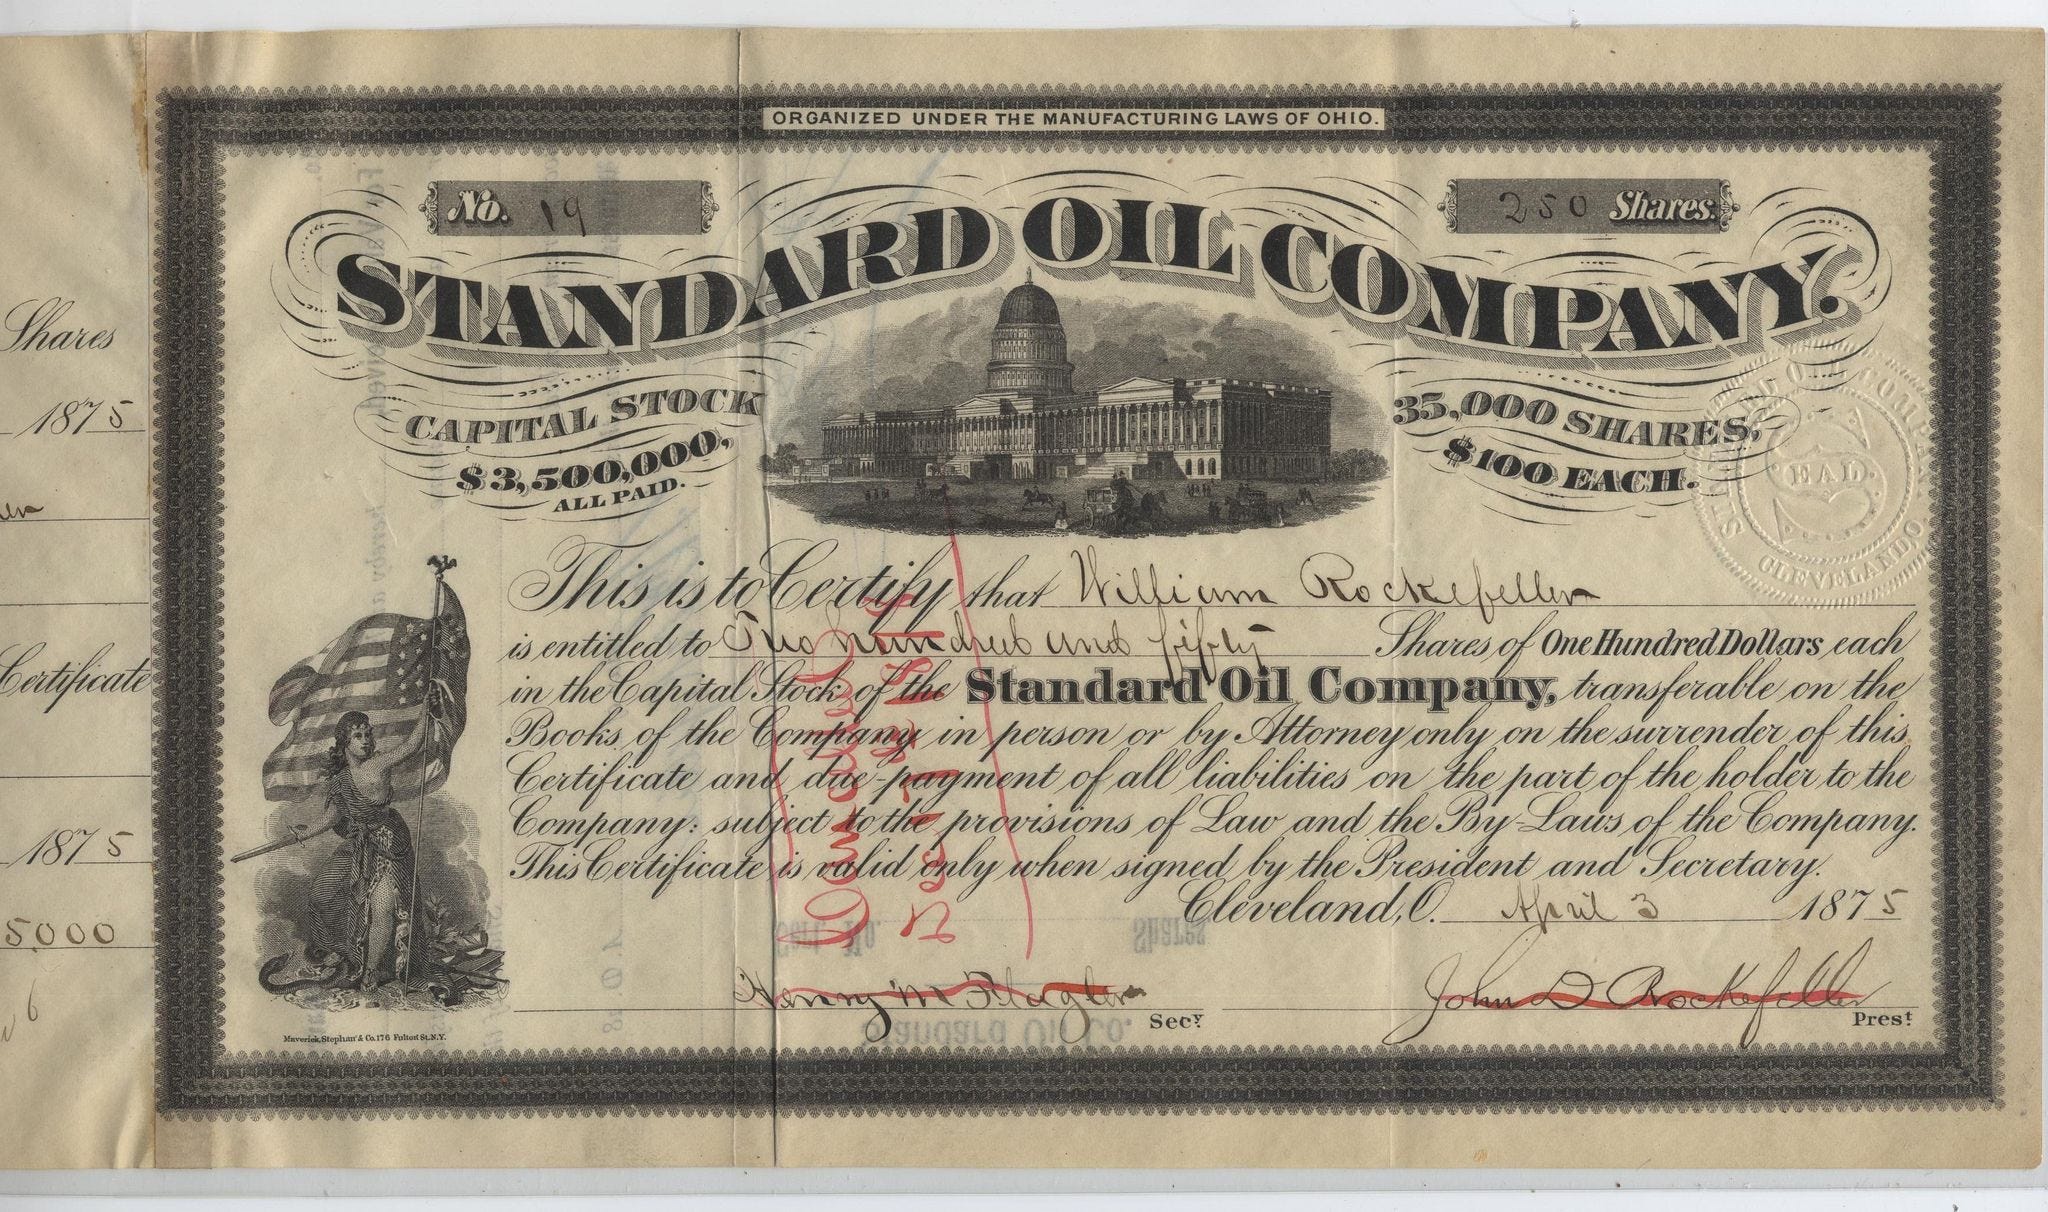 ORGANIZED UNDER THE MANUFACTURING LAWS OF OHIO.
No. 19
250 Shares.
STANDARD OIL COMPANY.
CAPITAL STOCK
$3,500,000,
ALL PAID.
35,000 SHARES,
$100 EACH.
SEAL
CLEVELAND O.
This is to Certify that William Rockefeller
is entitled to Two hundred and fifty Shares of One Hundred Dollars each
in the Capital Stock of the Standard Oil Company, transferable on the
Books of the Company in person or by Attorney only on the surrender of this
Certificate and due payment of all liabilities on the part of the holder to the
Company: subject to the provisions of Law and the By-Laws of the Company.
This Certificate is valid only when signed by the President and Secretary.
Cleveland, O. April 3 1875
Henry M Flagler Secy.
John D Rockefeller Prest.
Maverick, Stephan & Co. 176 Fulton St. N.Y.
Cancelled
Shares
1875
Certificate
1875
5000
6
Cert. No.
Shares
Standard Oil Co.